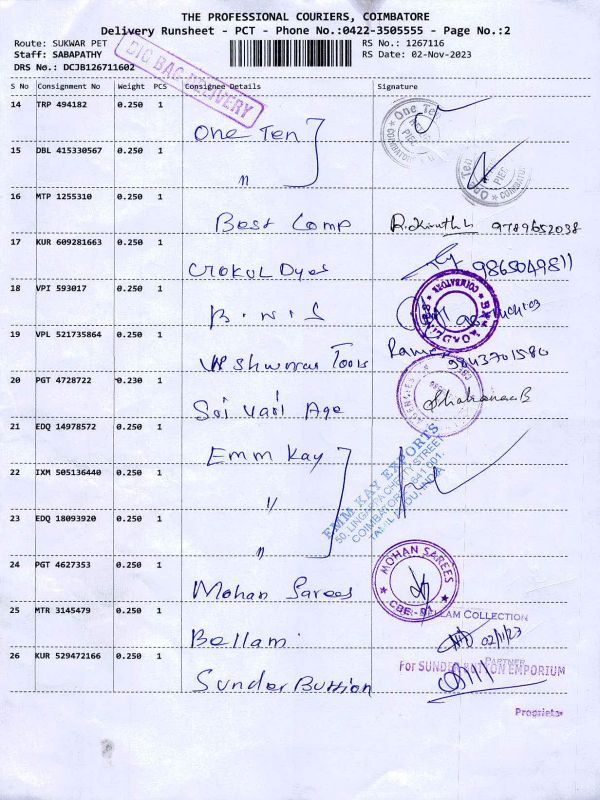 THE PROFESSIONAL COURIERS, COIMBATORE
Delivery Runsheet - PCT - Phone No.:0422-3505555 - Page No.:2
Route: SUKWAR PET
RS No.: 1267116
Staff: SABAPATHY
RS Date: 02-Nov-2023
DRS No.: DCJB126711602
BIG BAG DELIVERY
S No Consignment No Weight PCS Consignee Details Signature
14 TRP 494182 0.250 1 One Ten
One Ten COIMBATORE
15 DBL 415330567 0.250 1 "
One Ten COIMBATORE
16 MTP 1255310 0.250 1 Best Comp 9789652038
17 KUR 609281663 0.250 1 Dyes 9865049811
18 VPI 593017 0.250 1
COIMBATORE
19 VPL 521735864 0.250 1 Tools 9843701580
20 PGT 4728722 0.230 1 Sai Age
AGENCIES
21 EDQ 14978572 0.250 1 Emm Kay
EMM KAY EXPORTS
50, LINGAPPA CHETTY STREET
COIMBATORE - 641 001.
TAMIL NADU, INDIA
22 IXM 505136440 0.250 1 "
23 EDQ 18093920 0.250 1 "
24 PGT 4627353 0.250 1 Mohan Sarees
MOHAN SAREES
CBE-01
25 MTR 3145479 0.250 1 Bellam
COLLECTION
02/11/23
PARTNER
26 KUR 529472166 0.250 1 Sunder Buttion
For SUNDER BUTTON EMPORIUM